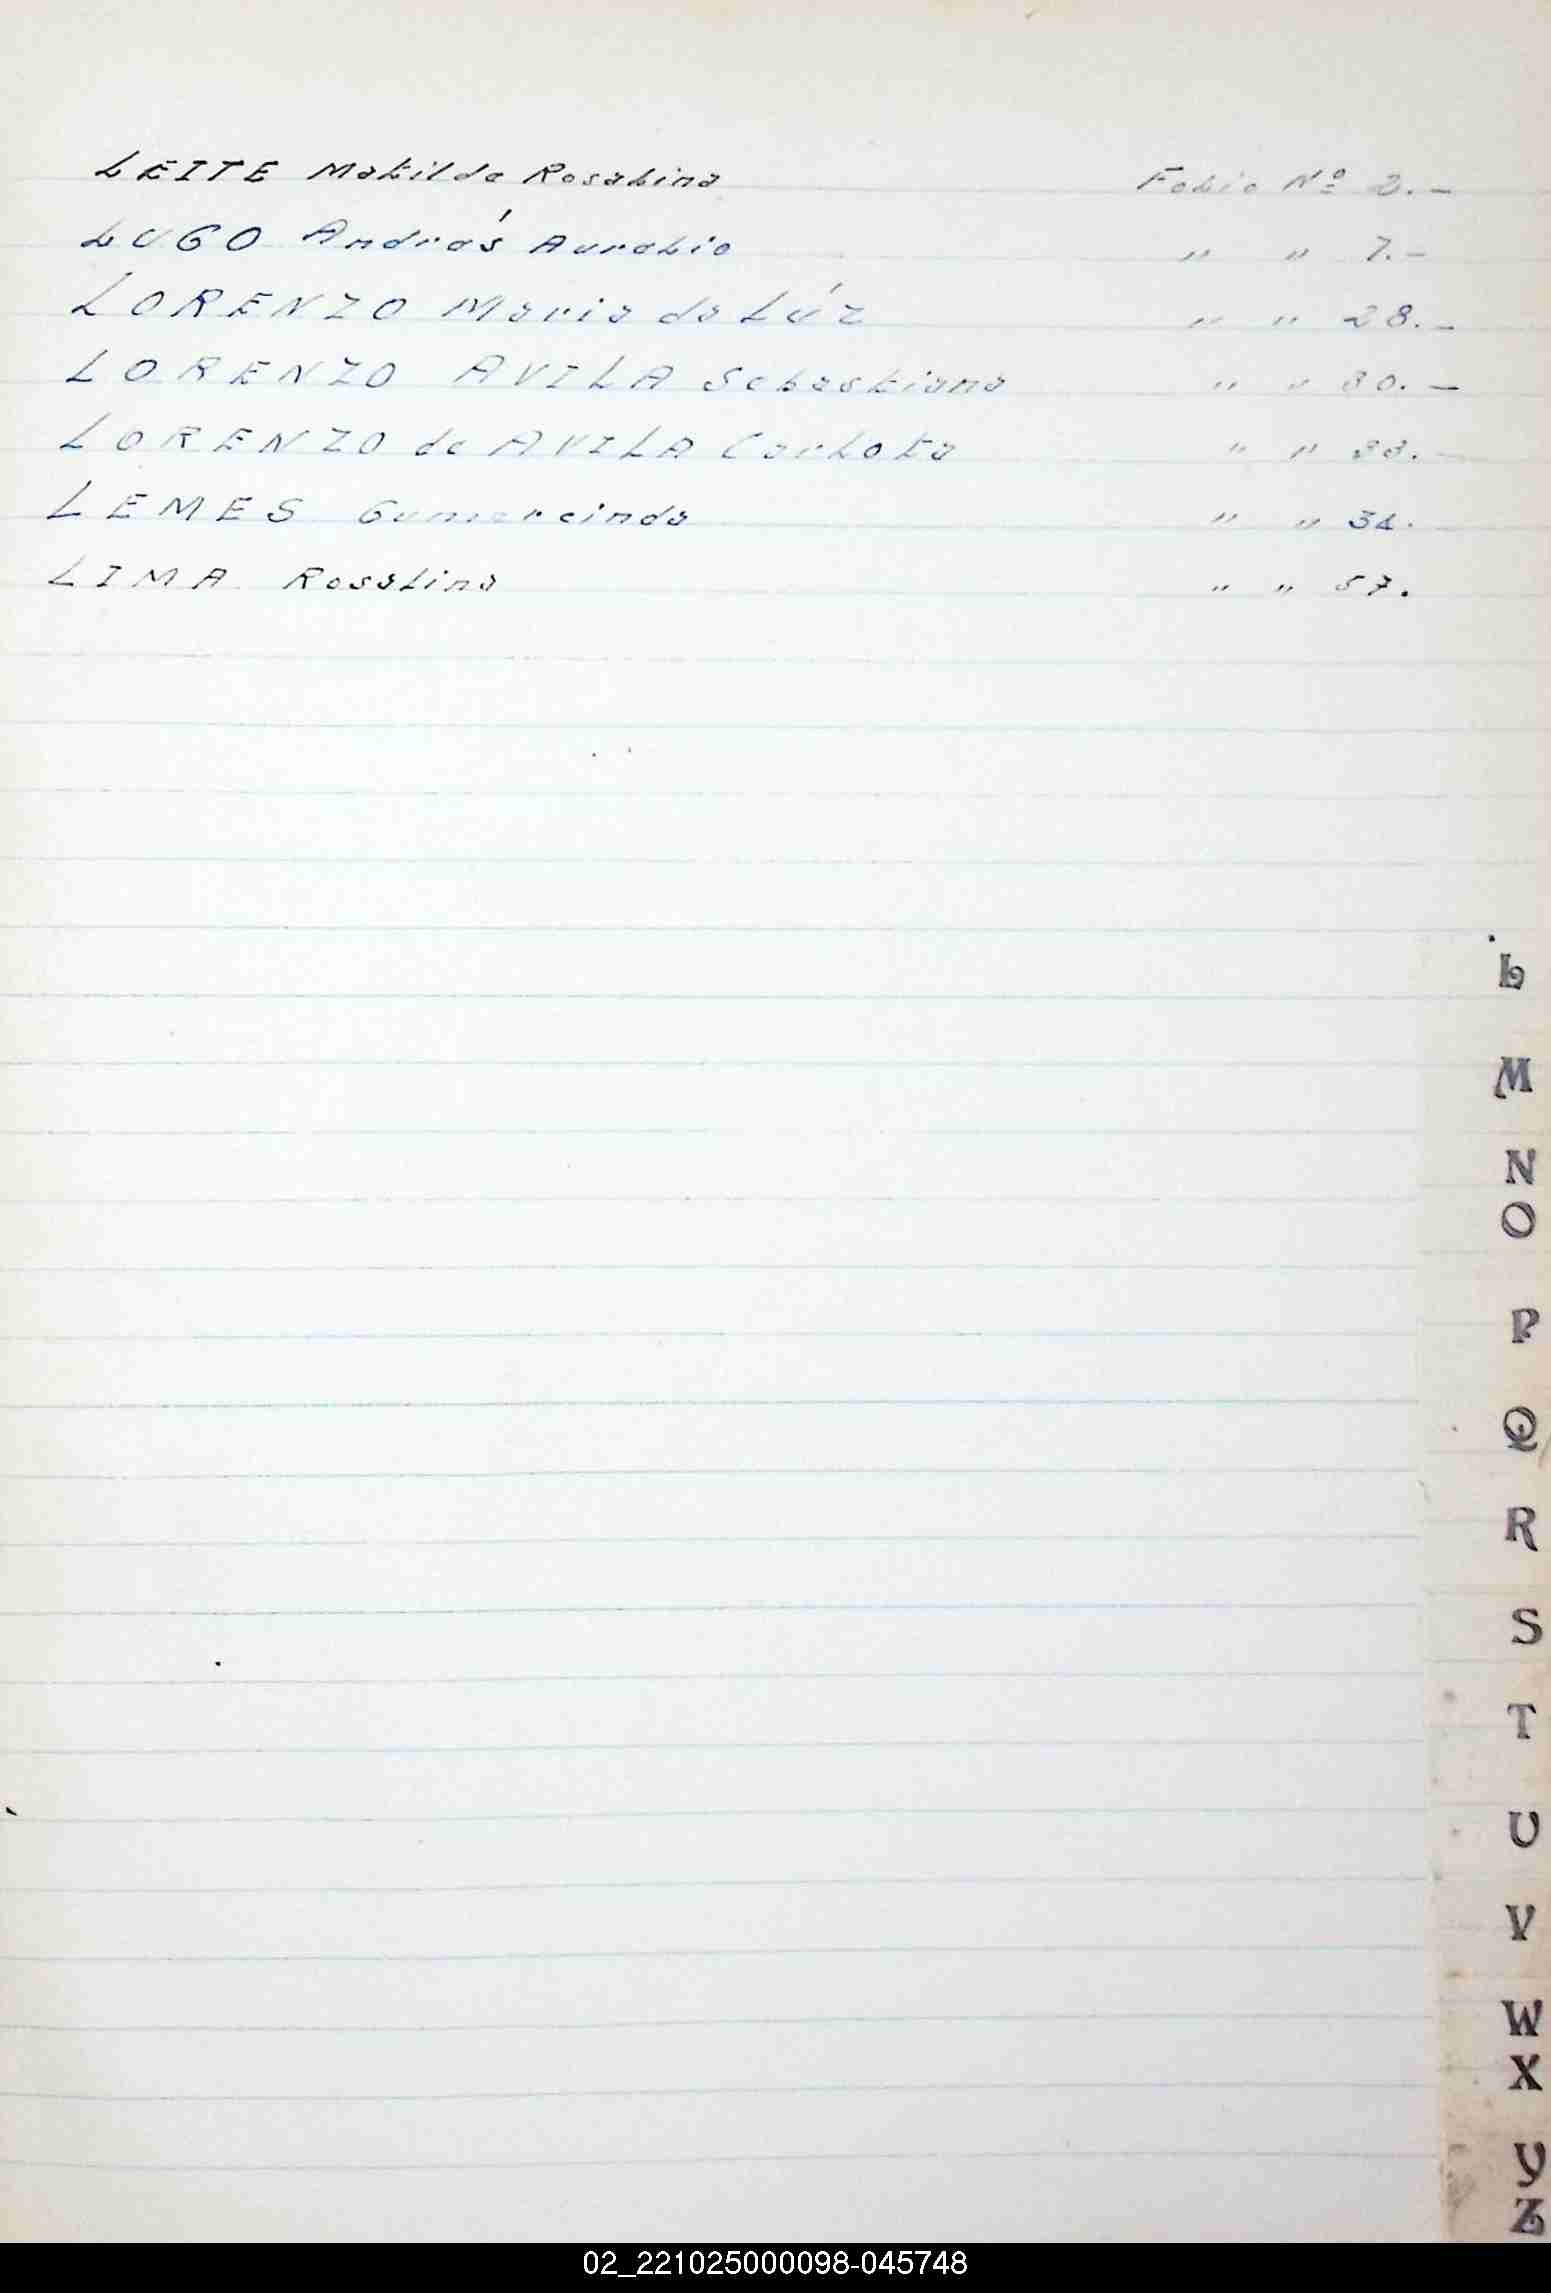 LEITE Matilde Rosalina Folio Nº 2.-
LUGO Andrés Aurelio " " 7.-
LORENZO Maria de LÚZ " " 28.-
LORENZO AVILA Sebastiana " " 30.-
LORENZO de AVILA Carlota " " 33.-
LEMES Gumercinda " "
LIMA Rosalina " " 57.
L
M
N
O
P
Q
R
S
T
U
V
W
X
Y
Z
02_221025000098-045748